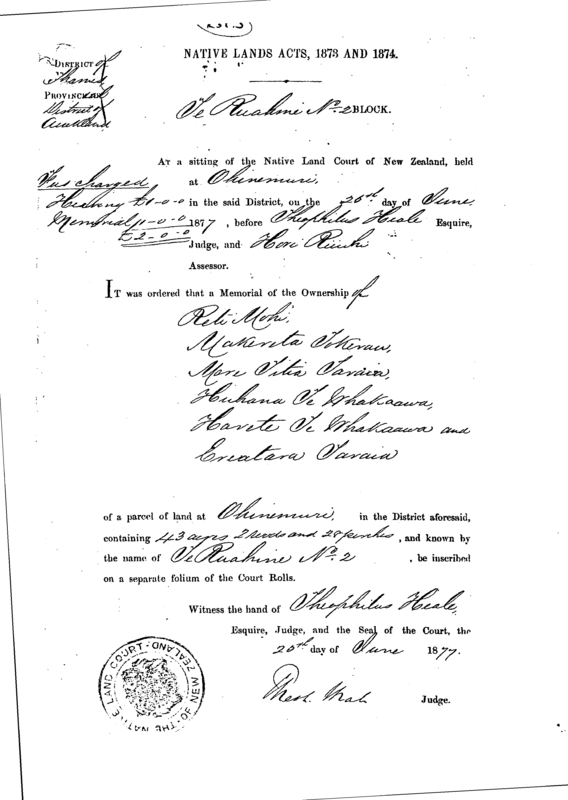 NATIVE LANDS ACTS, 1873 AND 1874.
DISTRICT of
Thames
PROVINCIAL
District of
Auckland
Te Ruahine No. 2 BLOCK.
AT a sitting of the Native Land Court of New Zealand, held
at Ohinemuri,
in the said District, on the 20th day of June
1877, before Theophilus Heale Esquire,
Judge, and Hori
Assessor.
Fees charged
Hearing £1-0-0
Memorial 1-0-0
£2-0-0
IT was ordered that a Memorial of the Ownership of
Reti Mohi,
Makereta Tokerau,
Mare Titia Taraia,
Huhana Te Whakaawa,
Harete Te Whakaawa and
Ereatara Taraia
of a parcel of land at Ohinemuri, in the District aforesaid,
containing 43 acres 2 roods and 28 perches, and known by
the name of Te Ruahine No. 2, be inscribed
on a separate folium of the Court Rolls.
Witness the hand of Theophilus Heale,
Esquire, Judge, and the Seal of the Court, the
20th day of June 1877.
Judge.
THE NATIVE LAND COURT · OF NEW ZEALAND ·